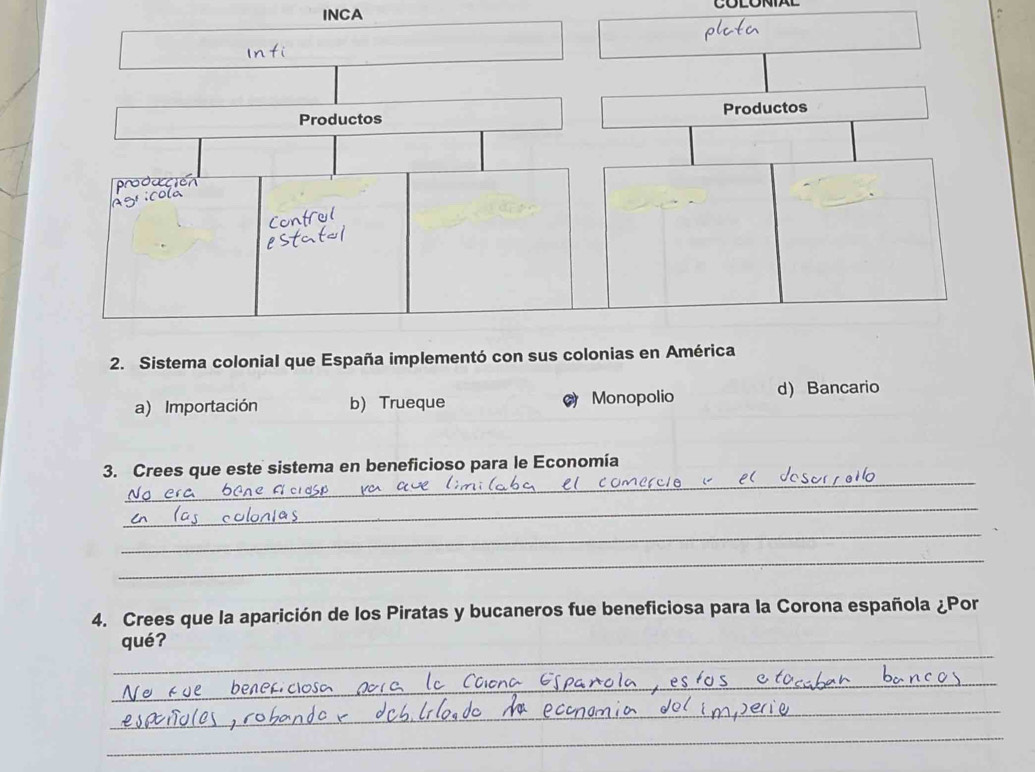 INCA
COLONIAL
Inti
plata
Productos
Productos
producción
Agricola
control
estatal
2. Sistema colonial que España implementó con sus colonias en América
a) Importación b) Trueque c) Monopolio d) Bancario
3. Crees que este sistema en beneficioso para le Economía
No era beneficioso ya que limitaba el comercio y el desarrollo
en las colonias
4. Crees que la aparición de los Piratas y bucaneros fue beneficiosa para la Corona española ¿Por
qué?
No fue beneficiosa para la Corona Española, estos atacaban barcos
españoles, robando y debilitando la economia del imperio